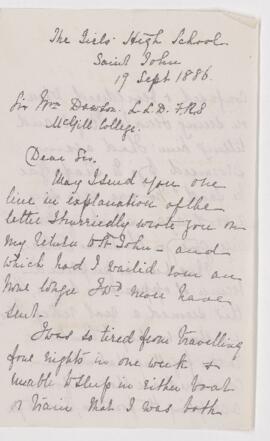 The Girls' High School.
Saint John
19 Sept 1886.
Sir Wm Dawson. L.L.D. F.R.S
McGill College.
Dear Sir.
May I send you one
line in explanation of the
letter I hurriedly wrote you on
my return to St John - and
which had I waited even an
hour longer I wd never have
sent.
I was so tired from travelling
four nights in one week &
unable to sleep in either boat
or train that I was both